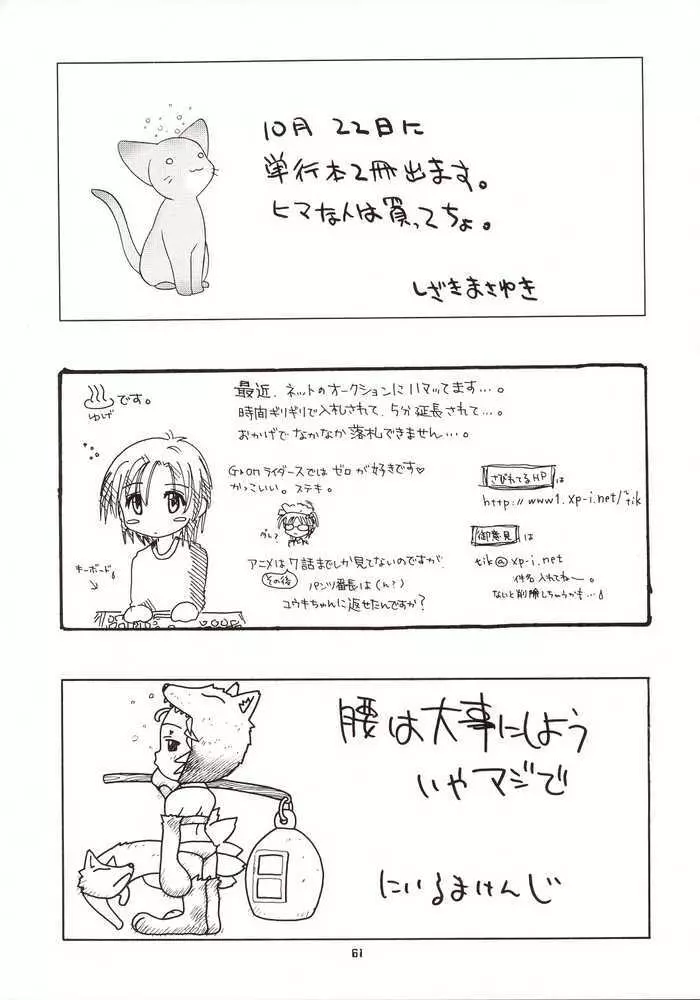 10月 22日に
単行本2冊出ます。
ヒマな人は買ってちょ。
しざきまさゆき
♨です。
ゆげ
最近、ネットのオークションにハマってます…。
時間ギリギリで入札されて、5分延長されて…。
おかげでなかなか落札できません…。
G-onライダースではゼロが好きです♡
かっこいい。ステキ。
グレ?
アニメは7話までしか見てないのですが、
その後
パンツ番長は(ん?)
ユウキちゃんに返せたんですか?
キーボード
さびれてるHP は
http://www1.xp-i.net/~tik
御意見 は
tik@xp-i.net
件名入れてねー。
ないと削除しちゃうかも…
腰は大事にしよう
いやマジで
にいるまけんじ
61